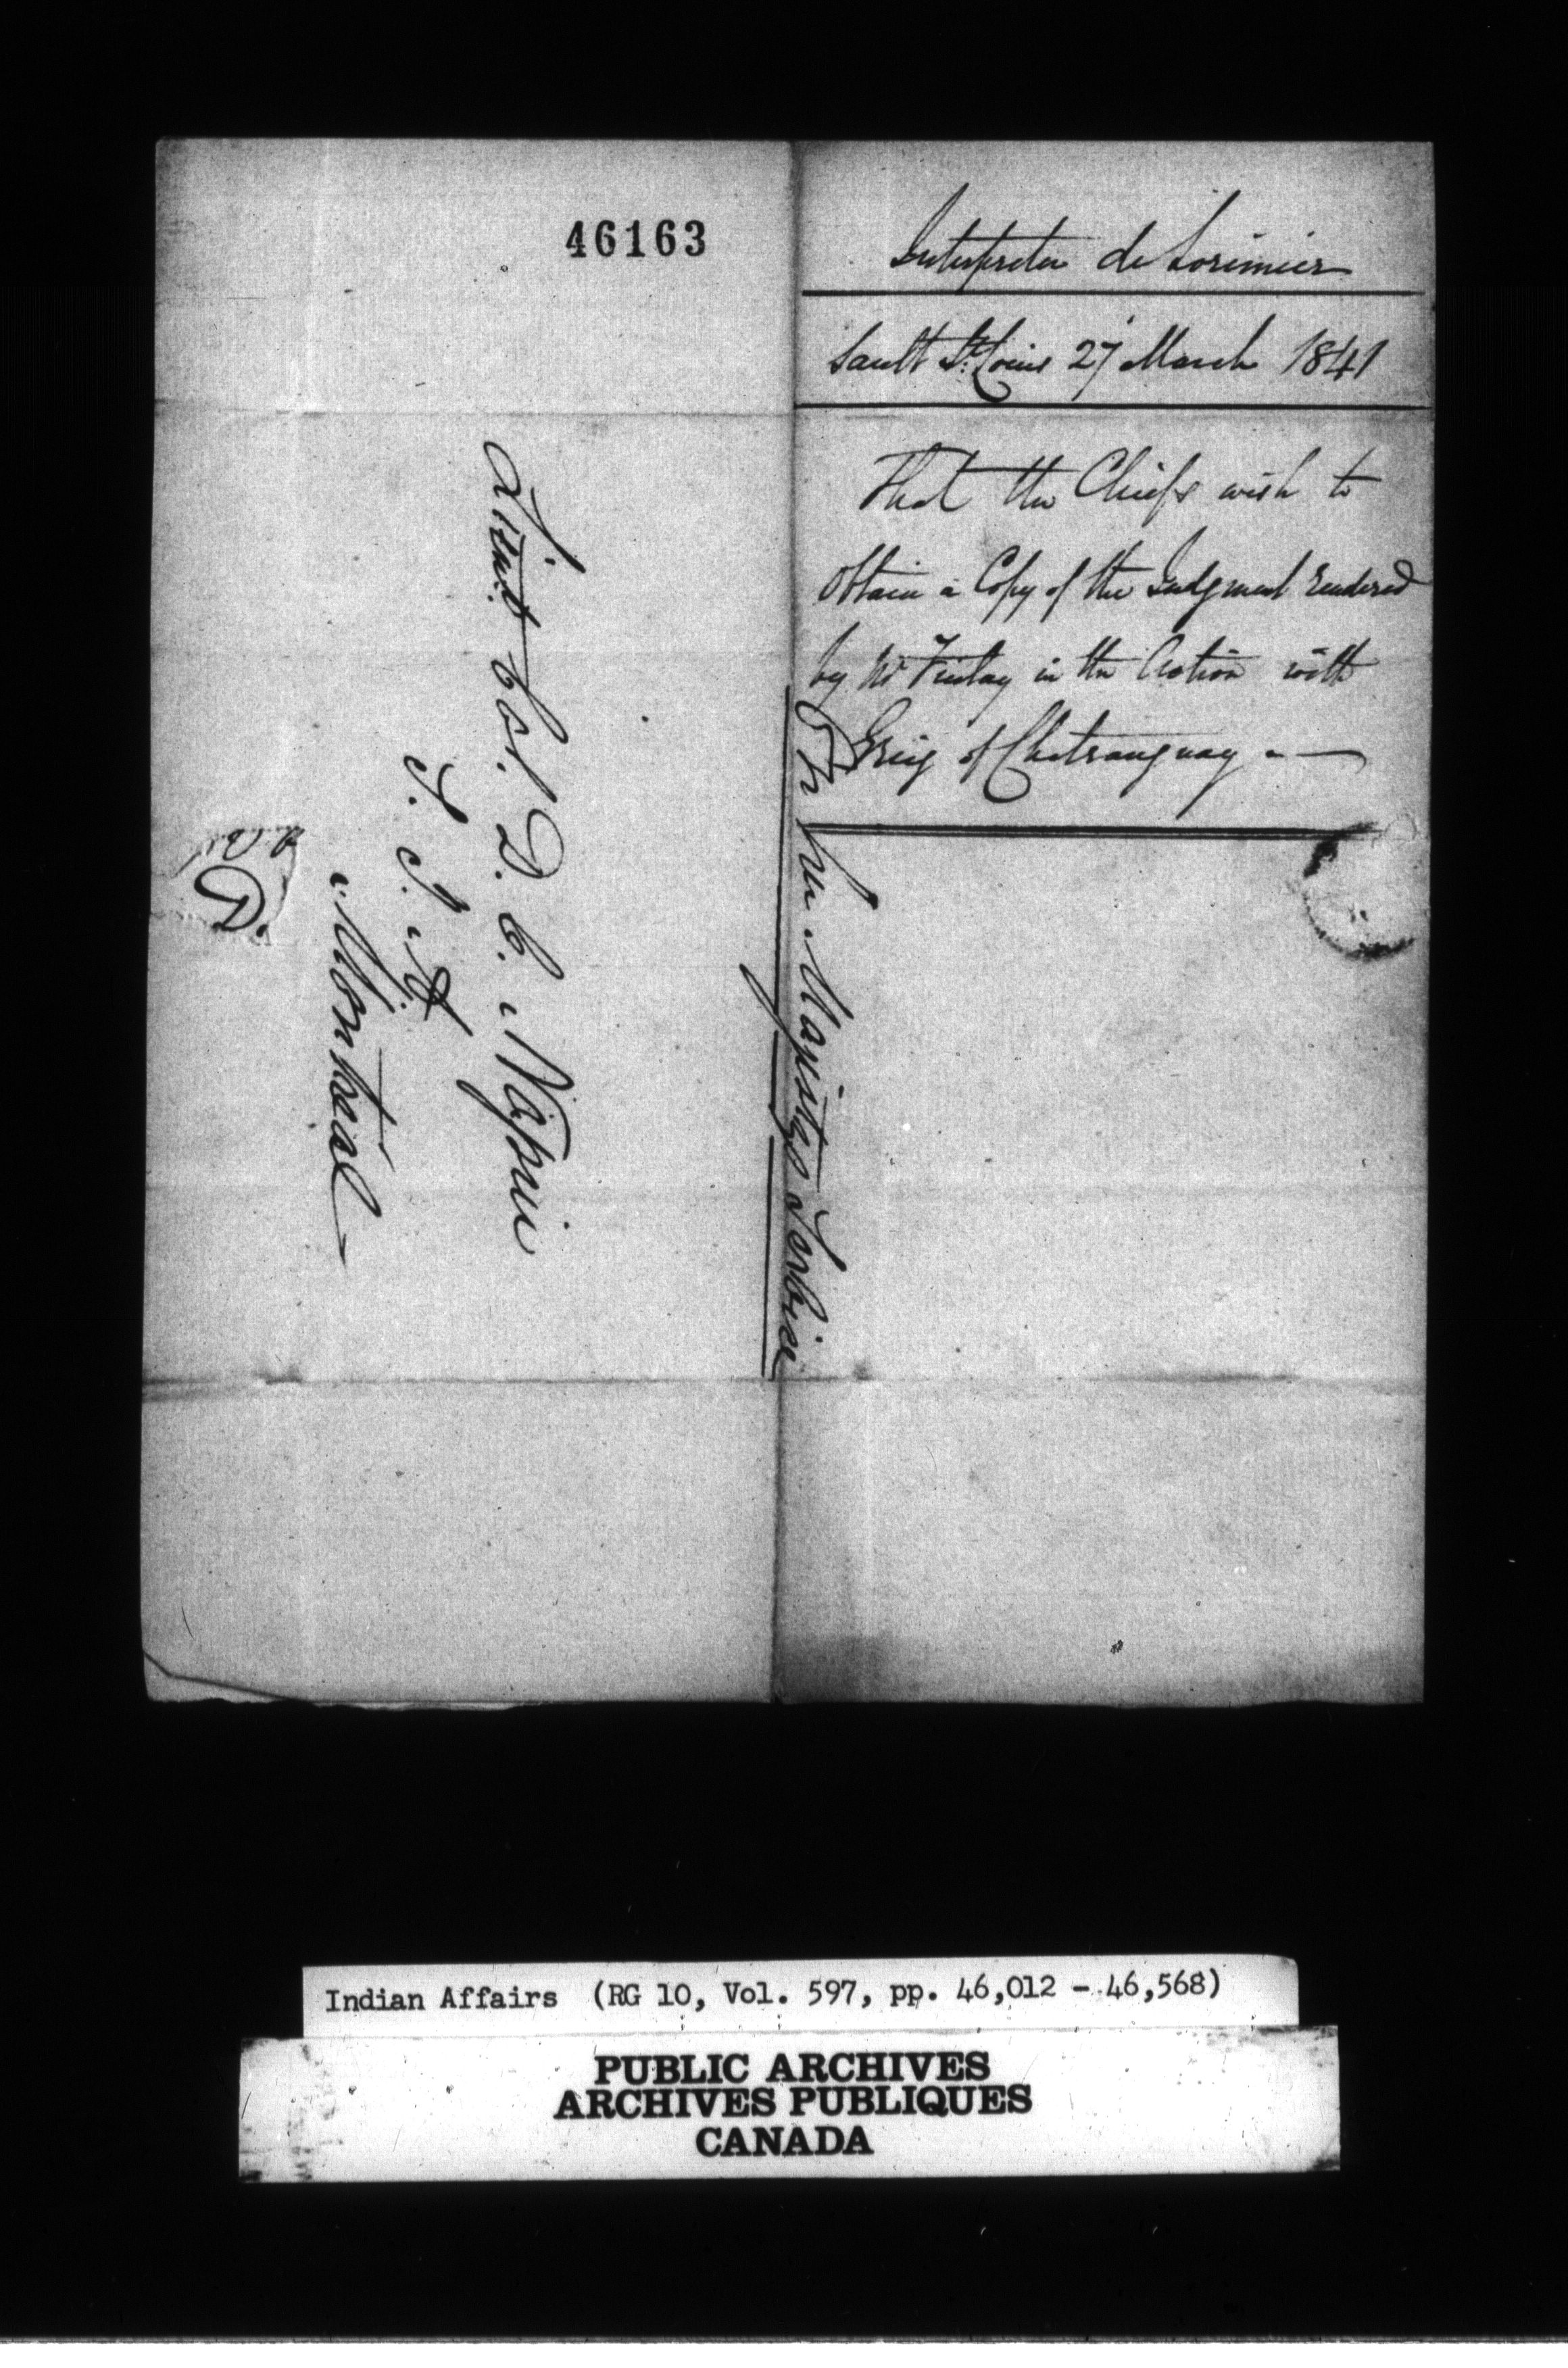 46163
Interpreter de Lorimier
Sault St. Louis 27 March 1841
That the Chiefs wish to
obtain a Copy of the Judgment rendered
by Mr Finlay in the Action with
Greig of Chateauguay
On her Majestys Service
Lieut. Col. D. C. Napier
S. I. A
Montreal
Indian Affairs (RG 10, Vol. 597, pp. 46,012 - 46,568)
PUBLIC ARCHIVES
ARCHIVES PUBLIQUES
CANADA